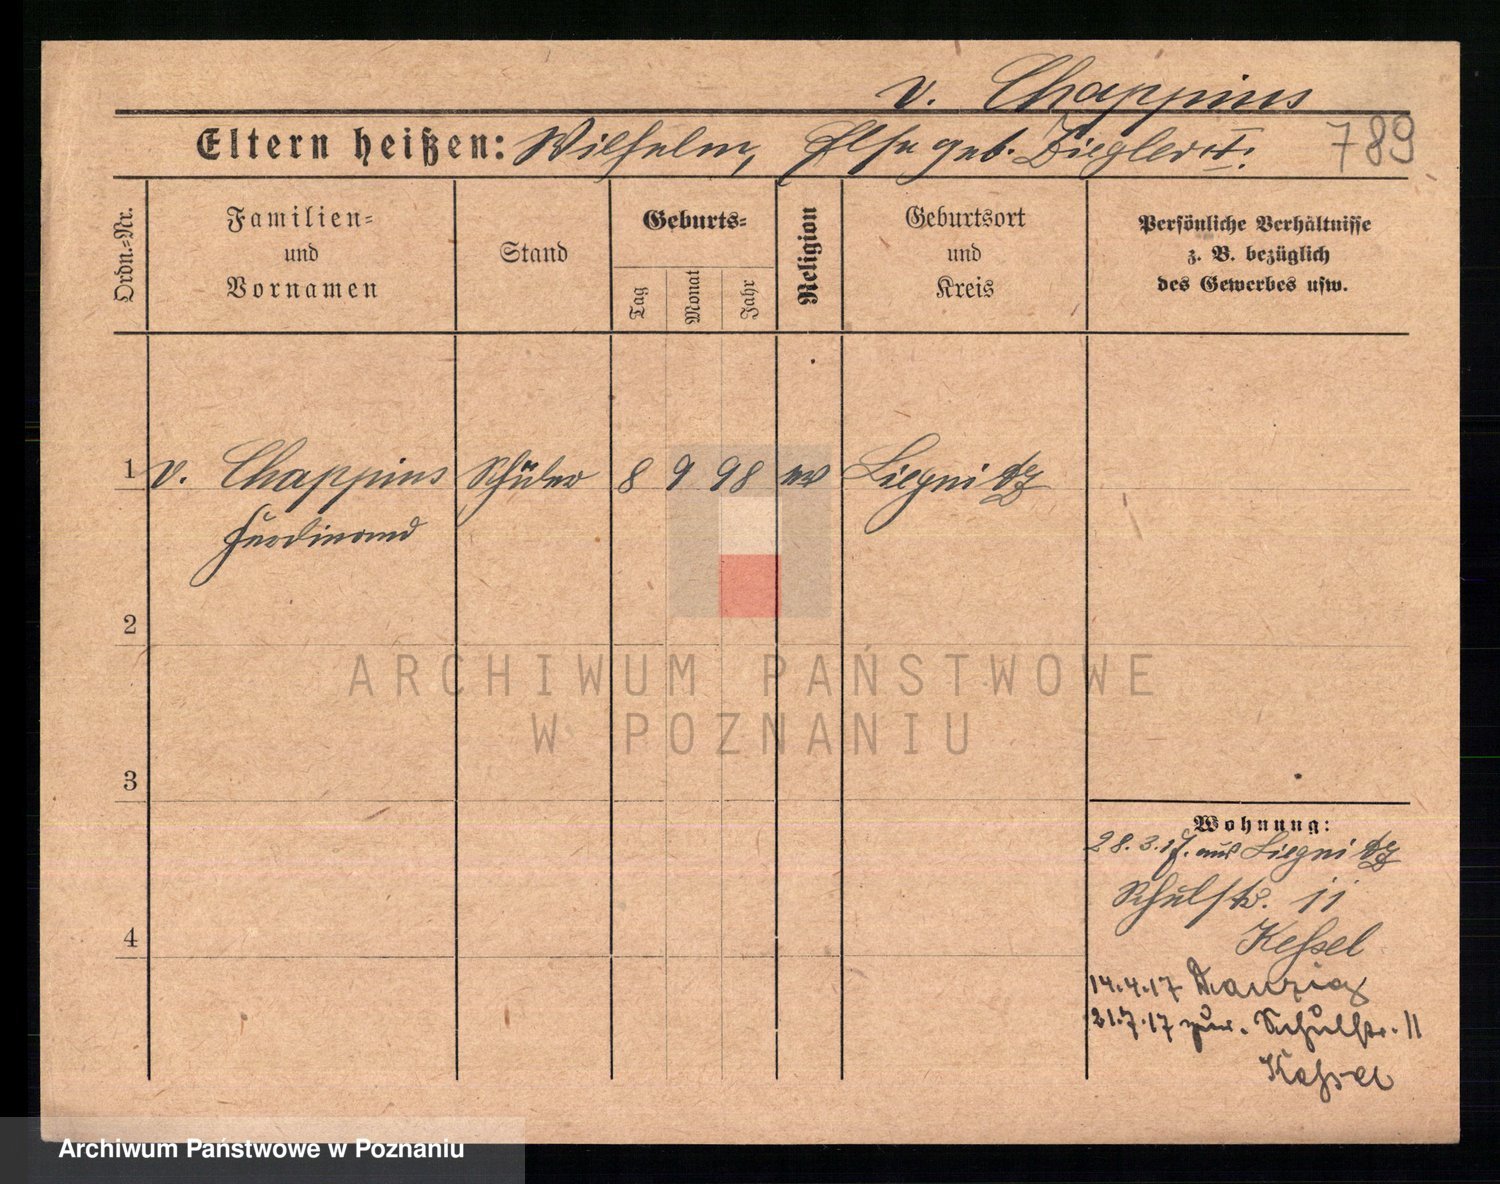 v. Chappuis
Eltern heißen: Wilhelm, Else geb. Ziegler
789
Ordn.=Nr.
Familien=
und
Vornamen
Stand
Geburts=
Tag
Monat
Jahr
Religion
Geburtsort
und
Kreis
Persönliche Verhältnisse
z. B. bezüglich
des Gewerbes usw.
1 v. Chappuis Schüler 8 9 98 ev Liegnitz
Ferdinand
2
3
4
Wohnung:
28.3.17. aus Liegnitz
Schulstr. 11
Kessel
14.4.17 Danzig
21.7.17 zur. Schulstr. 11
Kessel
ARCHIWUM PAŃSTWOWE
W POZNANIU
Archiwum Państwowe w Poznaniu